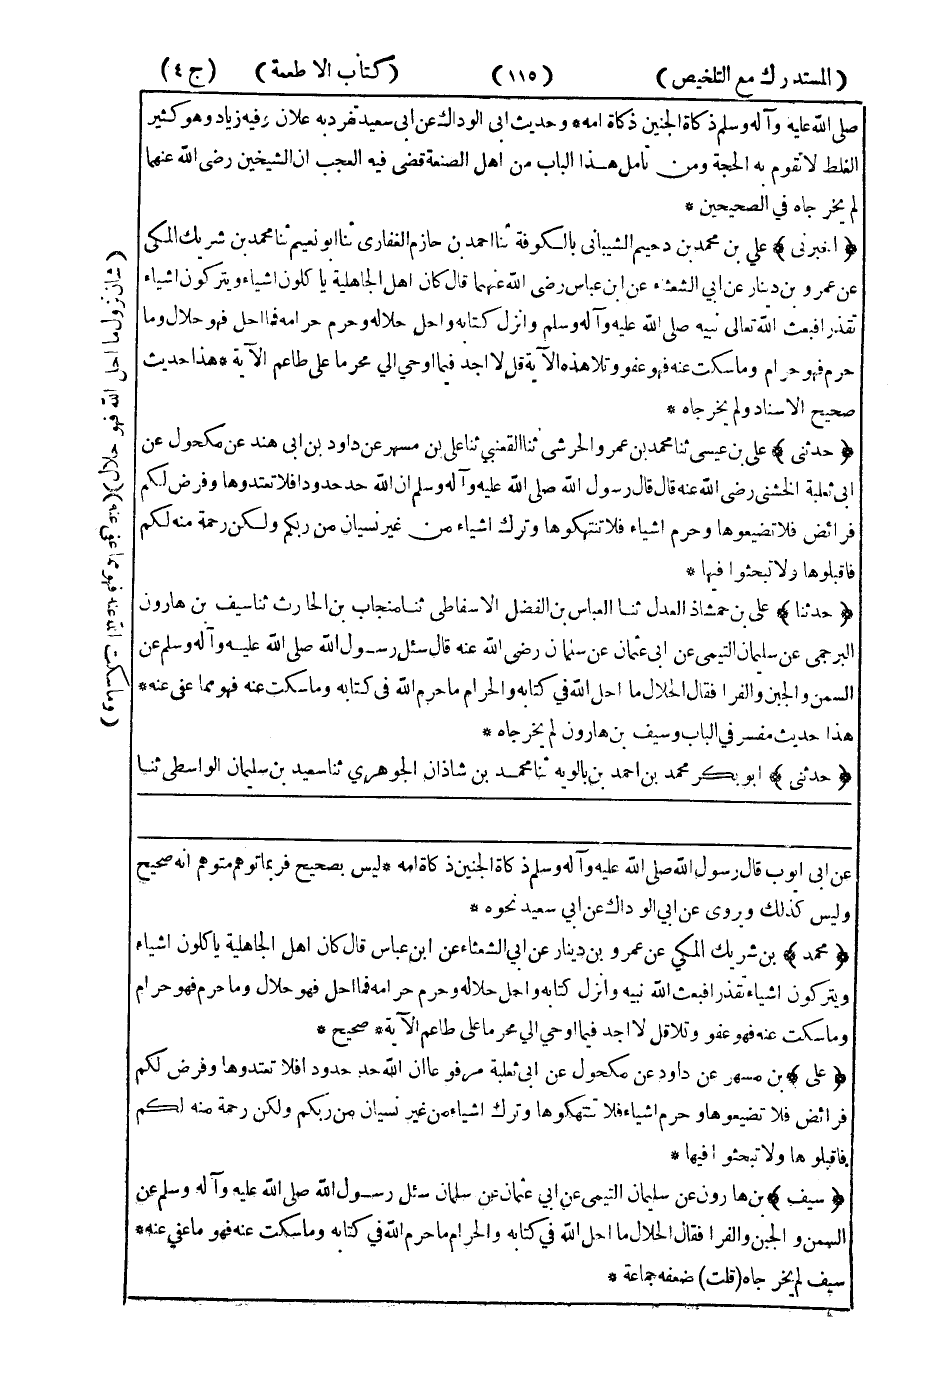 (المستدرك مع التلخيص) (١١٥) (كتاب الاطعمة) (ج ٤)
صلى الله عليه وآله وسلم ذكاة الجنين ذكاة امه * وحديث ابى الوداك عن ابى سعيد تفرد به علان رفيه زياد وهو كثير
الغلط لا تقوم به الحجة ومن تأمل هذا الباب من اهل الصنعة قضى فيه العجب ان الشيخين رضى الله عنهما
لم يخرجاه في الصحيحين *
﴿ اخبرنى ﴾ علي بن محمد بن دحيم الشيبانى بالكوفة ثنا احمد بن حازم الغفارى ثنا ابو نعيم ثنا محمد بن شريك المكي
عن عمرو بن دينار عن ابي الشعثاء عن ابن عباس رضى الله عنهما قال كان اهل الجاهلية يا كلون اشياء ويتركون اشياء
تقذرا فبعث الله تعالى نبيه صلى الله عليه وآله وسلم وانزل كتابه واحل حلاله وحرم حرامه فما احل فهو حلال وما
حرم فهو حرام وما سكت عنه فهو عفو وتلا هذه الآية قل لا اجد فيما اوحي الي محرما على طاعم الآية * هذا حديث
صحيح الاسناد ولم يخرجاه *
﴿ حدثنى ﴾ علي بن عيسى ثنا محمد بن عمرو الحرشى ثنا القعنبي ثنا على بن مسهر عن داود بن ابى هند عن مكحول عن
ابى ثعلبة الخشنى رضى الله عنه قال قال رسول الله صلى الله عليه وآله وسلم ان الله حد حدودا فلا تعتدوها وفرض لكم
فرائض فلا تضيعوها وحرم اشياء فلا تنتهكوها وترك اشياء من غير نسيان من ربكم ولكن رحمة منه لكم
فاقبلوها ولا تبحثوا فيها *
﴿ حدثنا ﴾ على بن حمشاذ العدل ثنا العباس بن الفضل الاسفاطى ثنا منجاب بن الحارث ثنا سيف بن هارون
البرجمى عن سليمان التيمى عن ابى عثمان عن سلمان رضى الله عنه قال سئل رسول الله صلى الله عليه وآله وسلم عن
السمن والجبن والفرا فقال الحلال ما احل الله في كتابه والحرام ما حرم الله فى كتابه وما سكت عنه فهو مما عفى عنه *
هذا حديث مفسر في الباب وسيف بن هارون لم يخرجاه *
﴿ حدثنى ﴾ ابو بكر محمد بن احمد بن بالويه ثنا محمد بن شاذان الجوهري ثنا سعيد بن سليمان الواسطى ثنا
(شان نزول ما احل الله فهو حلال) (وما سكت الله عنه فهو مما عفى عنه)
عن ابى ايوب قال رسول الله صلى الله عليه وآله وسلم ذكاة الجنين ذكاة امه * ليس بصحيح فربما توهم متوهم انه صحيح
وليس كذلك وروى عن ابي الوداك عن ابي سعيد نحوه *
﴿ محمد ﴾ بن شريك المكي عن عمرو بن دينار عن ابي الشعثاء عن ابن عباس قال كان اهل الجاهلية يا كلون اشياء
ويتركون اشياء تقذرا فبعث الله نبيه وانزل كتابه واحل حلاله وحرم حرامه فما احل فهو حلال وما حرم فهو حرام
وما سكت عنه فهو عفو وتلا قل لا اجد فيما اوحي الي محرما على طاعم الآية * صحيح *
﴿ على ﴾ بن مسهر عن داود عن مكحول عن ابى ثعلبة مرفوعا ان الله حد حدود افلا تعتدوها وفرض لكم
فرائض فلا تضيعوها وحرم اشياء فلا تنتهكوها وترك اشياء من غير نسيان من ربكم ولكن رحمة منه لكم
فاقبلوها ولا تبحثوا فيها *
﴿ سيف ﴾ بن هارون عن سليمان التيمى عن ابي عثمان عن سلمان سئل رسول الله صلى الله عليه وآله وسلم عن
السمن و الجبن والفرا فقال الحلال ما احل الله في كتابه والحرام ما حرم الله في كتابه وما سكت عنه فهو ما عفي عنه *
سيف لم يخرجاه (قلت) ضعفه جماعة *